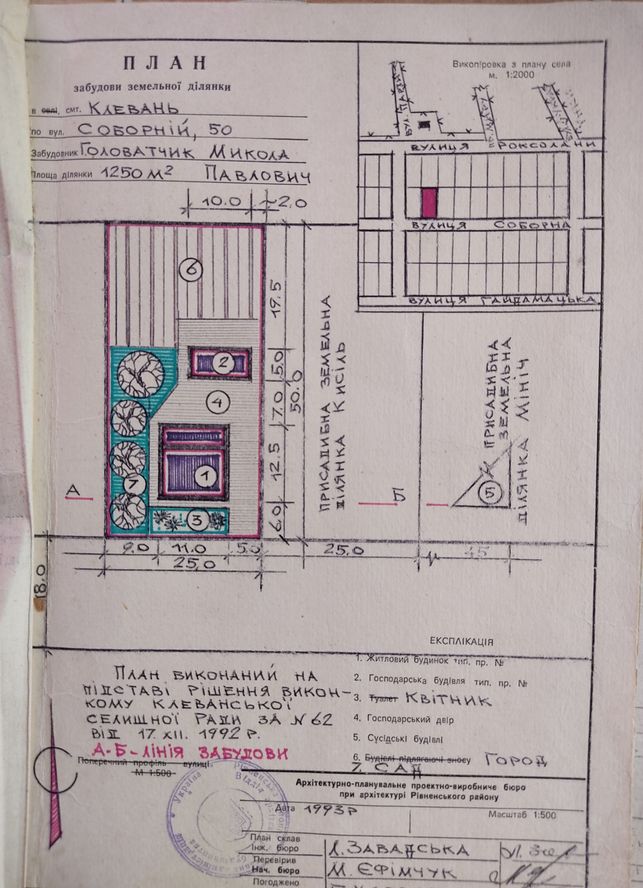 ПЛАН
забудови земельної ділянки
в селі, смт. КЛЕВАНЬ
по вул. СОБОРНІЙ, 50
Забудовник ГОЛОВАТЧИК МИКОЛА
Площа ділянки 1250 м² ПАВЛОВИЧ
Викопіровка з плану села
м. 1:2000
ВУЛИЦЯ РОКСОЛАНИ
ВУЛИЦЯ СОБОРНА
ВУЛИЦЯ ГАЙДАМАЦЬКА
10.0 ~2.0
6
19.5
2
5.0
4
7.0
50.0
1
12.5
7
3
6.0
А
Б
9.0 11.0 5.0
25.0
25.0
45
8.0
ПРИСАДИБНА ЗЕМЕЛЬНА
ДІЛЯНКА КИСІЛЬ
ПРИСАДИБНА
ЗЕМЕЛЬНА
ДІЛЯНКА МІНІЧ
5
ЕКСПЛІКАЦІЯ
1. Житловий будинок тип. пр. №
2. Господарська будівля тип. пр. №
3. Туалет КВІТНИК
4. Господарський двір
5. Сусідські будівлі
6. Будівлі підлягаючі зносу ГОРОД
7. САД
ПЛАН ВИКОНАНИЙ НА
ПІДСТАВІ РІШЕННЯ ВИКОН-
КОМУ КЛЕВАНСЬКОЇ
СЕЛИЩНОЇ РАДИ ЗА N 62
ВІД 17.XII.1992 р.
А-Б-ЛІНІЯ ЗАБУДОВИ
Поперечний профіль вулиці
М 1:500
Архітектурно-планувальне проектно-виробниче бюро
при архітектурі Рівненського району
Дата 1993р Масштаб 1:500
План склав
Інж. бюро Л. ЗАВАДСЬКА
Перевірив
Нач. бюро М. ЄФІМЧУК
Погоджено
Україна